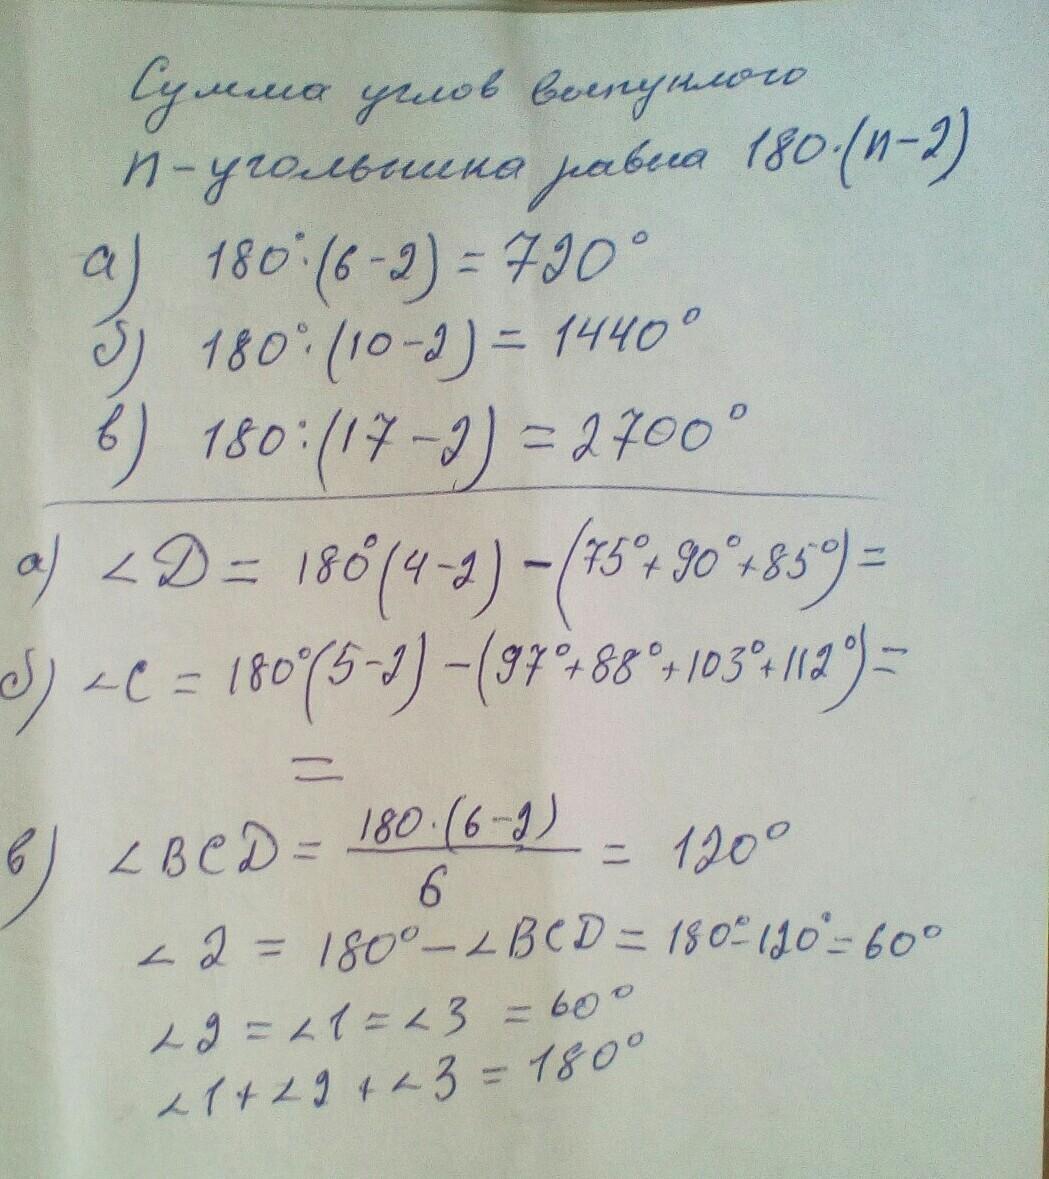 Сумма углов выпуклого
n-угольника равна 180·(n-2)
а) 180°·(6-2) = 720°
б) 180°·(10-2) = 1440°
в) 180°·(17-2) = 2700°
а) ∠D = 180°(4-2) - (75°+90°+85°) =
б) ∠C = 180°(5-2) - (97°+88°+103°+112°) =
=
в) ∠BCD = 180·(6-2)/6 = 120°
∠2 = 180° - ∠BCD = 180°-120° = 60°
∠2 = ∠1 = ∠3 = 60°
∠1 + ∠2 + ∠3 = 180°